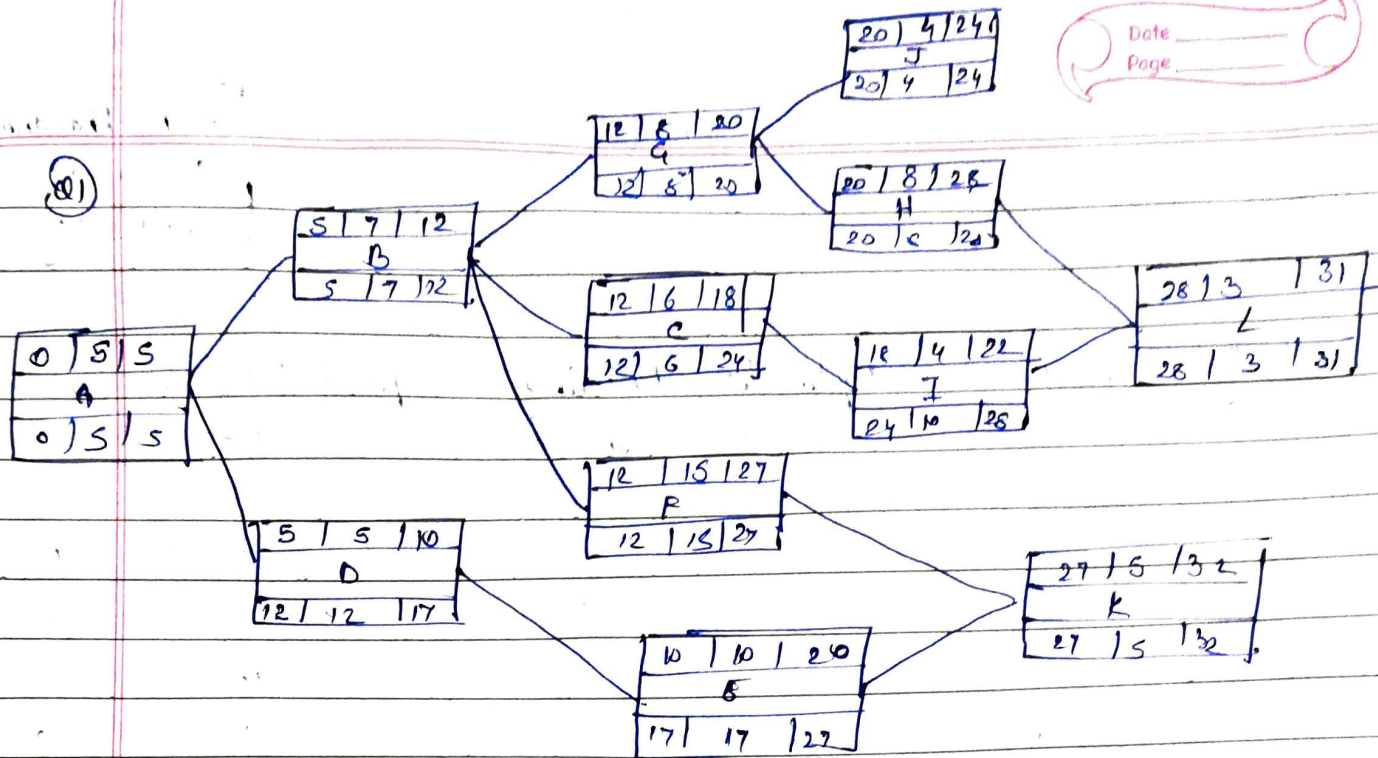 Date
Page
Q1
0 | 5 | 5
A
0 | 5 | 5
5 | 7 | 12
B
5 | 7 | 12
5 | 5 | 10
D
12 | 12 | 17
12 | 8 | 20
G
12 | 8 | 20
12 | 6 | 18
C
12 | 6 | 24
12 | 15 | 27
F
12 | 15 | 27
10 | 10 | 20
E
17 | 17 | 27
20 | 4 | 24
J
20 | 4 | 24
20 | 8 | 28
H
20 | 8 | 28
18 | 4 | 22
I
24 | 10 | 28
28 | 3 | 31
L
28 | 3 | 31
27 | 5 | 32
K
27 | 5 | 32